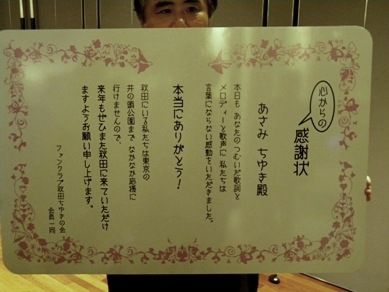 心からの
感謝状
あさみ ちやき殿
本日も あなたのつむいだ歌詞と
メロディーと歌声に 私たちは
言葉にならない感動をいただきました。
本当にありがとう！
秋田にいる私たちは東京の
井の頭公園まで なかなか応援に
行けませんので、
来年もぜひまた秋田に来ていただけ
ますようお願い申し上げます。
ファンクラブ秋田ちやきの会
会員一同